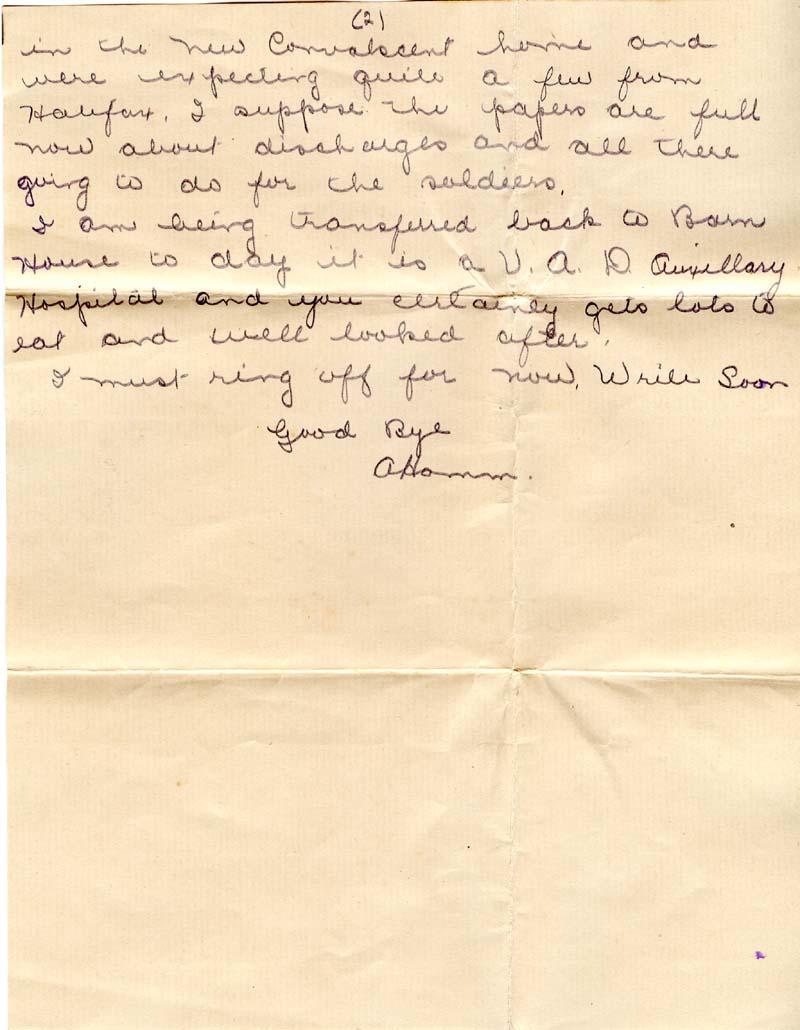 (2)
in the new Convalscent home and
were expecting quite a few from
Halifax. I suppose the papers are full
now about discharges and all there
going to do for the soldiers.
I am being transferred back to Barn
House to day it is a V. A. D. Auxillary
Hospital and you certainly gets lots to
eat and well looked after.
I must ring off for now. Write Soon
Good Bye
AHamm.